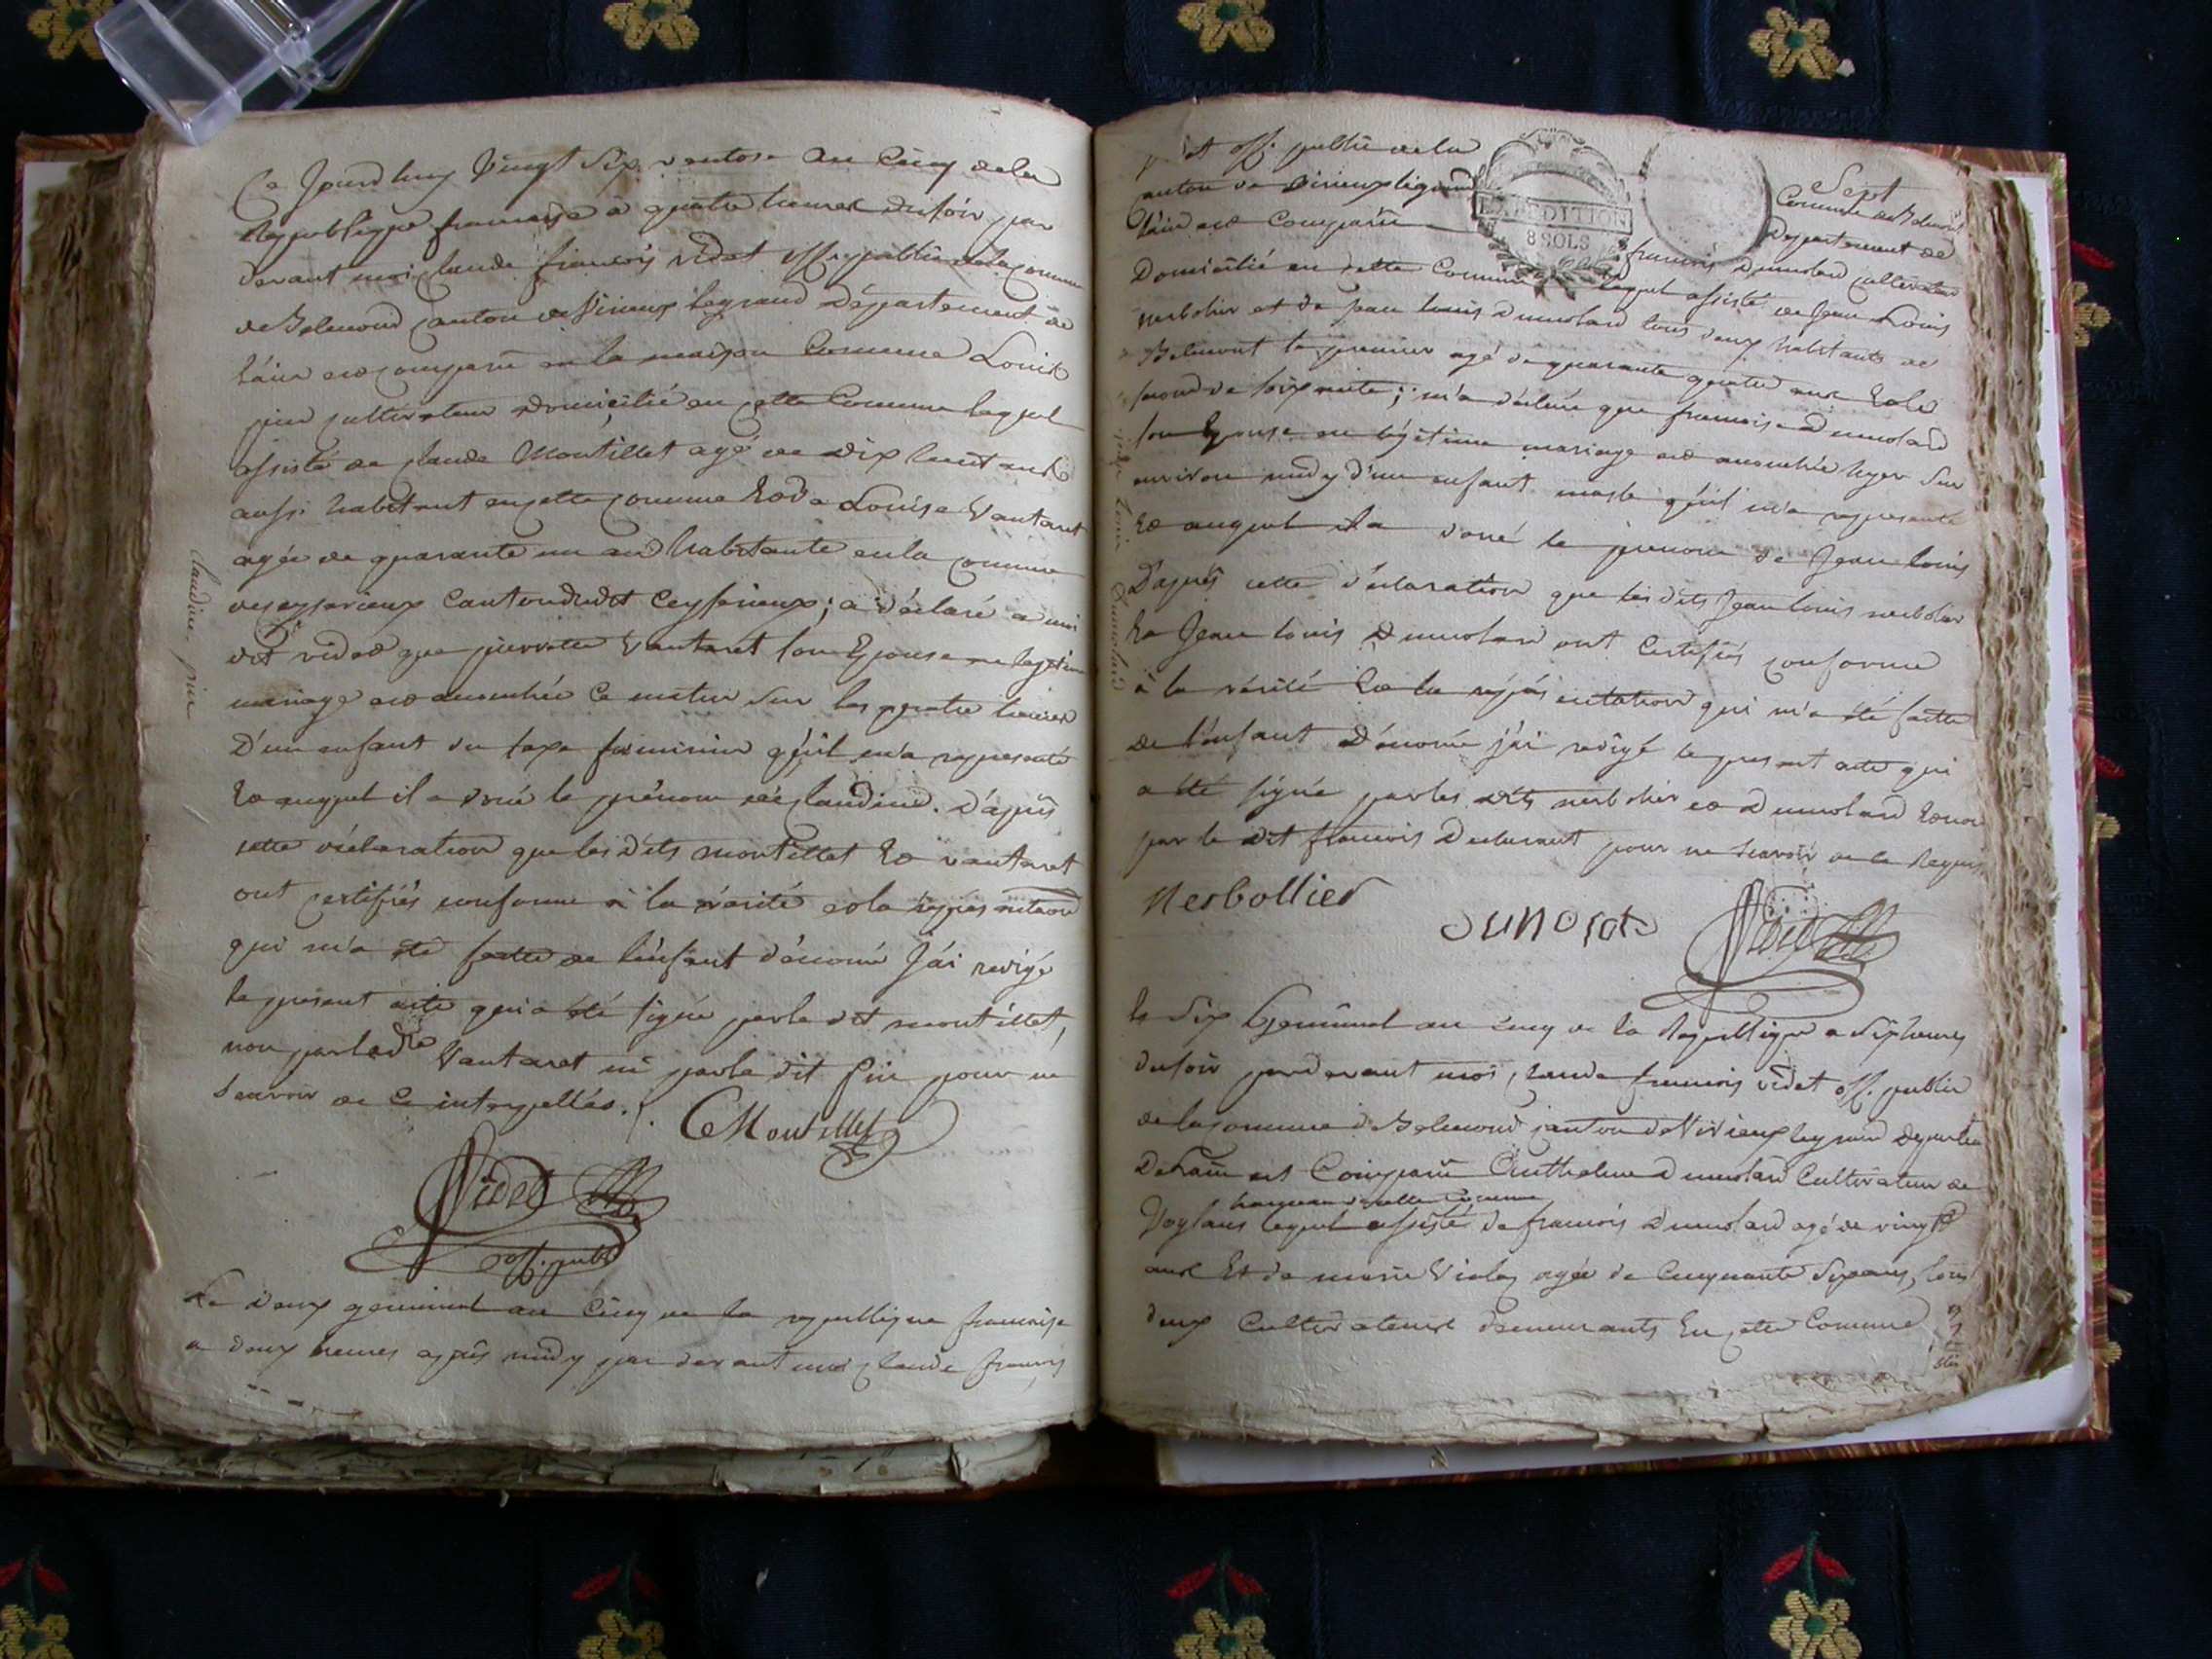 Ce Jourdhuy Vingt Six ventose an Cinq dela
Republique francaise a quatre heures dusoir par
devant moi claude francois videt off. public dela comune
de Belmond canton de Virieux legrand Département de
l'ain est comparu en la maison Comune Louis
pin cultivateur domicilié en cette Comune lequel
assisté de claude Montillet agé de dix huit ans
aussi habitant en cette comune Et de Louise Vantaret
agée de quarante un an habitante en la comune
de ceyserieux Canton dudit Ceyserieux; a déclaré a moi
dit videt que pierrette Vantaret son Epouse en legitime
mariage est accouchée ce matin sur les quatre heures
D'un enfant du sexe feminin qu'il m'a representé
Et auquel il a doné le prénom de claudine. D'apres
cette déclaration que les dits montillet Et vantaret
ont certifiés conforme à la vérité et la représentation
qui m'a été faitte de l'enfant dénomé J'ai redigé
le present acte qui a été signé par le dit montillet,
non par ladte Vantaret ni par le dit pin pour ne
scavoir de ce interpellés./.
CMontillet
Videt
off. public
claudine pin
Le deux germinal an Cinq de la republique francaise
a deux heures apres midy par devant moi claude francois
Sept
videt off. public de la Comune de Belmont
canton de virieux legrand Departement de
l'ain est Comparu francois dumolard cultivateur
EXPEDITION
8 SOLS
Domicilié en cette Comune lequel assisté de Jean Louis
nerbolier et de Jean Louis dumolard tous deux habitants de
Belmont le premier agé de quarante quatre ans Et le
second de soixante; m'a déclaré que francoise Dumolard
son Epouse en légitime mariage est accouchée hyer sur
environ midy d'un enfant masle qu'il m'a representé
Et auquel il a doné le prenom de Jean Louis
D'après cette déclaration que les dits Jean Louis nerbolier
Et Jean Louis Dumolard ont Certifiés conforme
à la vérité Et la représentation qui m'a été faitte
de l'enfant dénomé j'ai redigé le present acte qui
a été signé par les dits nerbolier et dumolard Et non
par le dit francois Declarant pour ne scavoir de ce Requis
Nerbollier
dunolard
Videt
Jean Louis Dumolard
le Six Germinal an cinq de la Republique a Six heures
du soir pardevant moi claude francois videt off. public
de la comune de Belmond canton de Virieux legrand Departem
De l'ain est Comparu Anthelme Dumolard Cultivateur de
hameau de cette Comune
lequel assisté de francois dumolard agé de vingt
ans Et de marie Violoz agée de Cinquante Six ans, tous
deux Cultivateurs demeurants En cette Comune